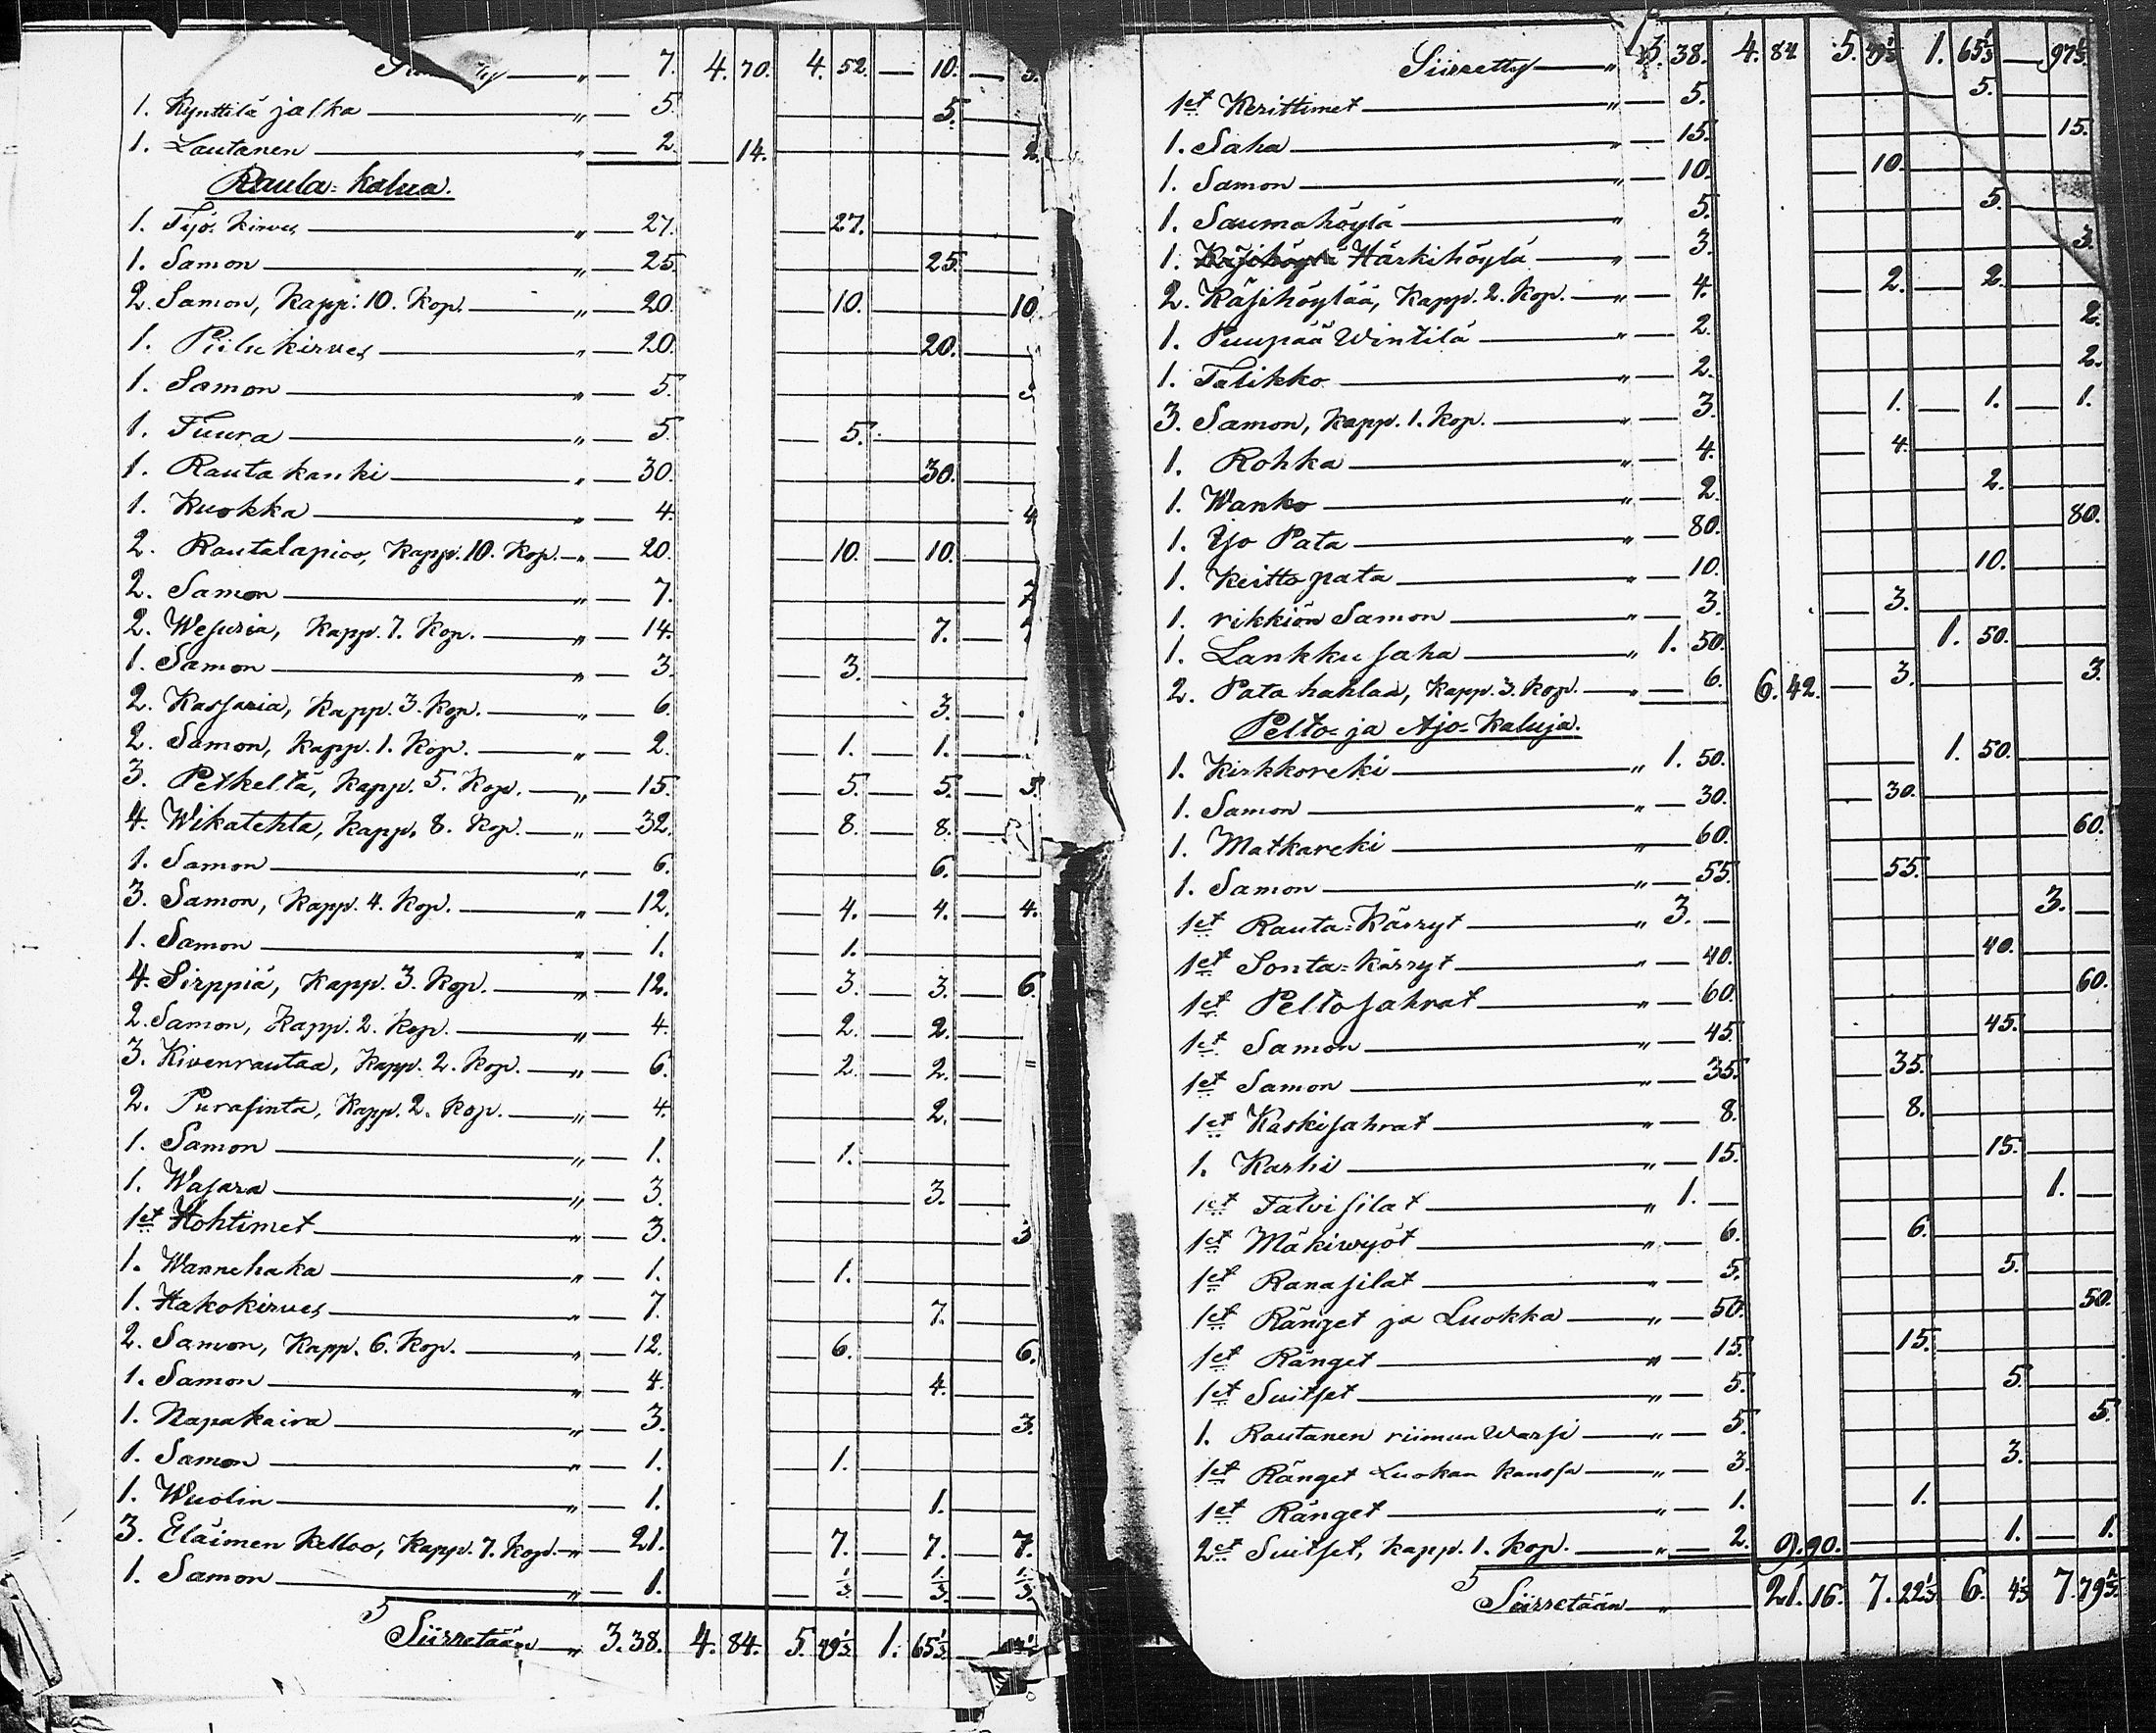 7. 4. 70. 4. 52. — 10. —
1. Kynttilä jalka — " — 5. 5.
1. Lautanen — " — 2. — 14. 2.
Rauta-kalua.
1. Työ kirves — " — 27. — 27.
1. Samon — " — 25. 25.
2. Samon, Kapp. 10. Kop. — " — 20. — 10. 10.
1. Piilukirves — " — 20. 20.
1. Samon — " — 5.
1. Tuura — " — 5. — 5.
1. Rautakanki — " — 30. 30.
1. Kuokka — " — 4. 4
2. Rautalapioo, Kapp. 10. Kop. — " — 20. — 10. — 10.
2. Samon — " — 7. 7
2. Wesuria, Kapp. 7. Kop. — " — 14. 7.
1. Samon — " — 3. — 3.
2. Kassaria, Kapp. 3. Kop. — " — 6. 3.
2. Samon, Kapp. 1. Kop. — " — 2. — 1. — 1.
3. Petkeltä, Kapp. 5. Kop. — " — 15. — 5. — 5. — 5.
4. Wikatehta, Kapp. 8. Kop. — " — 32. — 8. — 8.
1. Samon — " — 6. 6.
3. Samon, Kapp. 4. Kop. — " — 12. — 4. — 4. — 4.
1. Samon — " — 1. — 1.
4. Sirppiä, Kapp. 3. Kop. — " — 12. — 3. — 3. — 6.
2. Samon, Kapp. 2. Kop. — " — 4. — 2. — 2.
3. Kivenrautaa, Kapp. 2. Kop. — " — 6. — 2. — 2.
2. Purasinta, Kapp. 2. Kop. — " — 4. — 2.
1. Samon — " — 1. — 1.
1. Wasara — " — 3. — 3.
1et Hohtimet — " — 3. 3
1. Wannehaka — " — 1. — 1.
1. Hakokirves — " — 7. 7.
2. Samon, Kapp. 6. Kop. — " — 12. — 6. 6.
1. Samon — " — 4. 4.
1. Napakaira — " — 3. 3.
1. Samon — " — 1. — 1.
1. Wuolin — " — 1. 1.
3. Eläimen Kelloo, Kapp. 7. Kop. — " — 21. — 7. — 7. — 7.
1. Samon — " — 1. — 1/3 — 1/3 — 1/3
Siirretään — " 3. 38. 4. 84. 5. 1. 65 1/3
Siirretty — " 38. 4. 84 5. 1. 65 1/3 — 97 1/3
1et Kerittimet — " — 5. 5.
1. Saha — " — 15. 15.
1. Samon — " — 10. — 10.
1. Saumahöylä — " — 5. 5.
1. Käsihöylä Härkihöylä — " — 3. 3.
2. Käsihöylää, Kapp. 2. Kop. — " — 4. — 2. — 2.
1. Puupää Wintilä — " — 2. 2.
1. Talikko — " — 2. 2.
3. Samon, Kapp. 1. Kop. — " — 3. — 1. — 1. — 1.
1. Rohka — " — 4. — 4.
1. Wanko — " — 2. 2.
1. Yso Pata — " — 80. 80.
1. Keitto pata — " — 10. 10.
1. rikkiön Samon — " — 3. — 3.
1. Lankku saha — " 1. 50. 1. 50.
2. Pata hahlaa, Kapp. 3. Kop. — " — 6. 6. 42. — 3. 3.
Pelto- ja Ajo-Kaluja.
1. Kirkkoreki — " 1. 50. 1. 50.
1. Samon — " — 30. — 30.
1. Matkareki — " — 60. 60.
1. Samon — " — 55. — 55.
1et Rauta-Kärryt — " 3. — 3. —
1et Sonta-Kärryt — " — 40. 40.
1et Peltosahrat — " — 60. 60.
1et Samon — " — 45. 45.
1et Samon — " — 35. — 35.
1et Kaskisahrat — " — 8. — 8.
1. Karhi — " — 15. 15.
1et Talvisilat — " 1. — 1. —
1et Mäkiwyöt — " — 6. — 6.
1et Ranasilat — " — 5. 5.
1et Ränget ja Luokka — " — 50. 50.
1et Ränget — " — 15. — 15.
1et Suitset — " — 5. 5.
1. Rautanen riimun Warsi — " — 5. 5.
1et Ränget Luokan kanssa — " — 3. 3.
1et Ränget — " — 1. — 1.
2et Suitset, Kapp. 1. Kop. — " — 2. 9. 90. 1. — 1.
Siirretään — " 21. 16. 7. 22 1/3 6. 4 1/3 7. 79 1/3